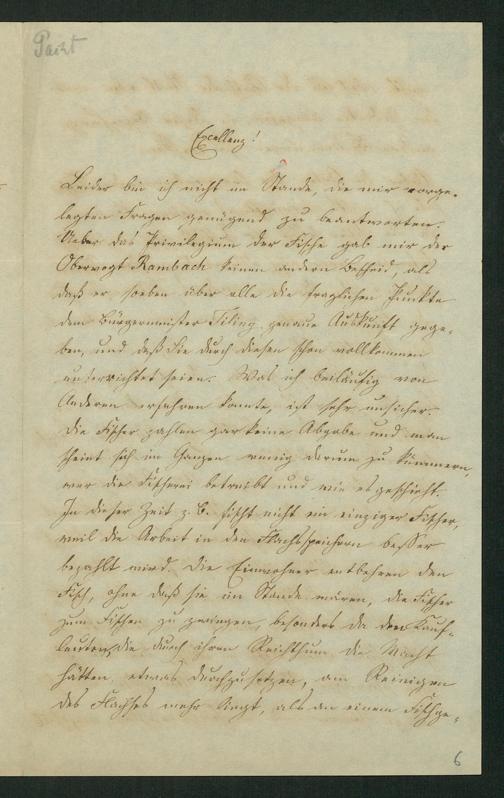 Excellenz!
Leider bin ich nicht im Stande, die mir vorge-
legten Fragen genügend zu beantworten.
Ueber das Privilegium der Fische gab mir der
Rambach keinen andern Bescheid, als
daß er soeben über alle die fraglichen Punkte
dem Bürgermeister Tiling genaue Auskunft gege-
ben, und daß Sie durch diesen schon vollkommen
unterrichtet seien. Was ich beiläufig von
Anderen erfahren konnte, ist sehr unsicher.
Die Fischer zahlen gar keine Abgabe und man
scheint sich im Ganzen wenig darum zu kümmern,
wer die Fischerei betreibt und wie es geschieht.
In dieser Zeit z. B. fischt nicht ein einziger Fischer,
weil die Arbeit in den Flachsspeichern besser
bezahlt wird. Die Einwohner entbehren den
Fisch, ohne daß sie im Stande wären, die Fischer
zum Fischen zu zwingen, besonders da den Kauf-
leuten, die durch ihren Reichthum die Macht
hätten etwas durchzusetzen, am Reinigen
des Flachses mehr liegt, als an einem Fischge-
6